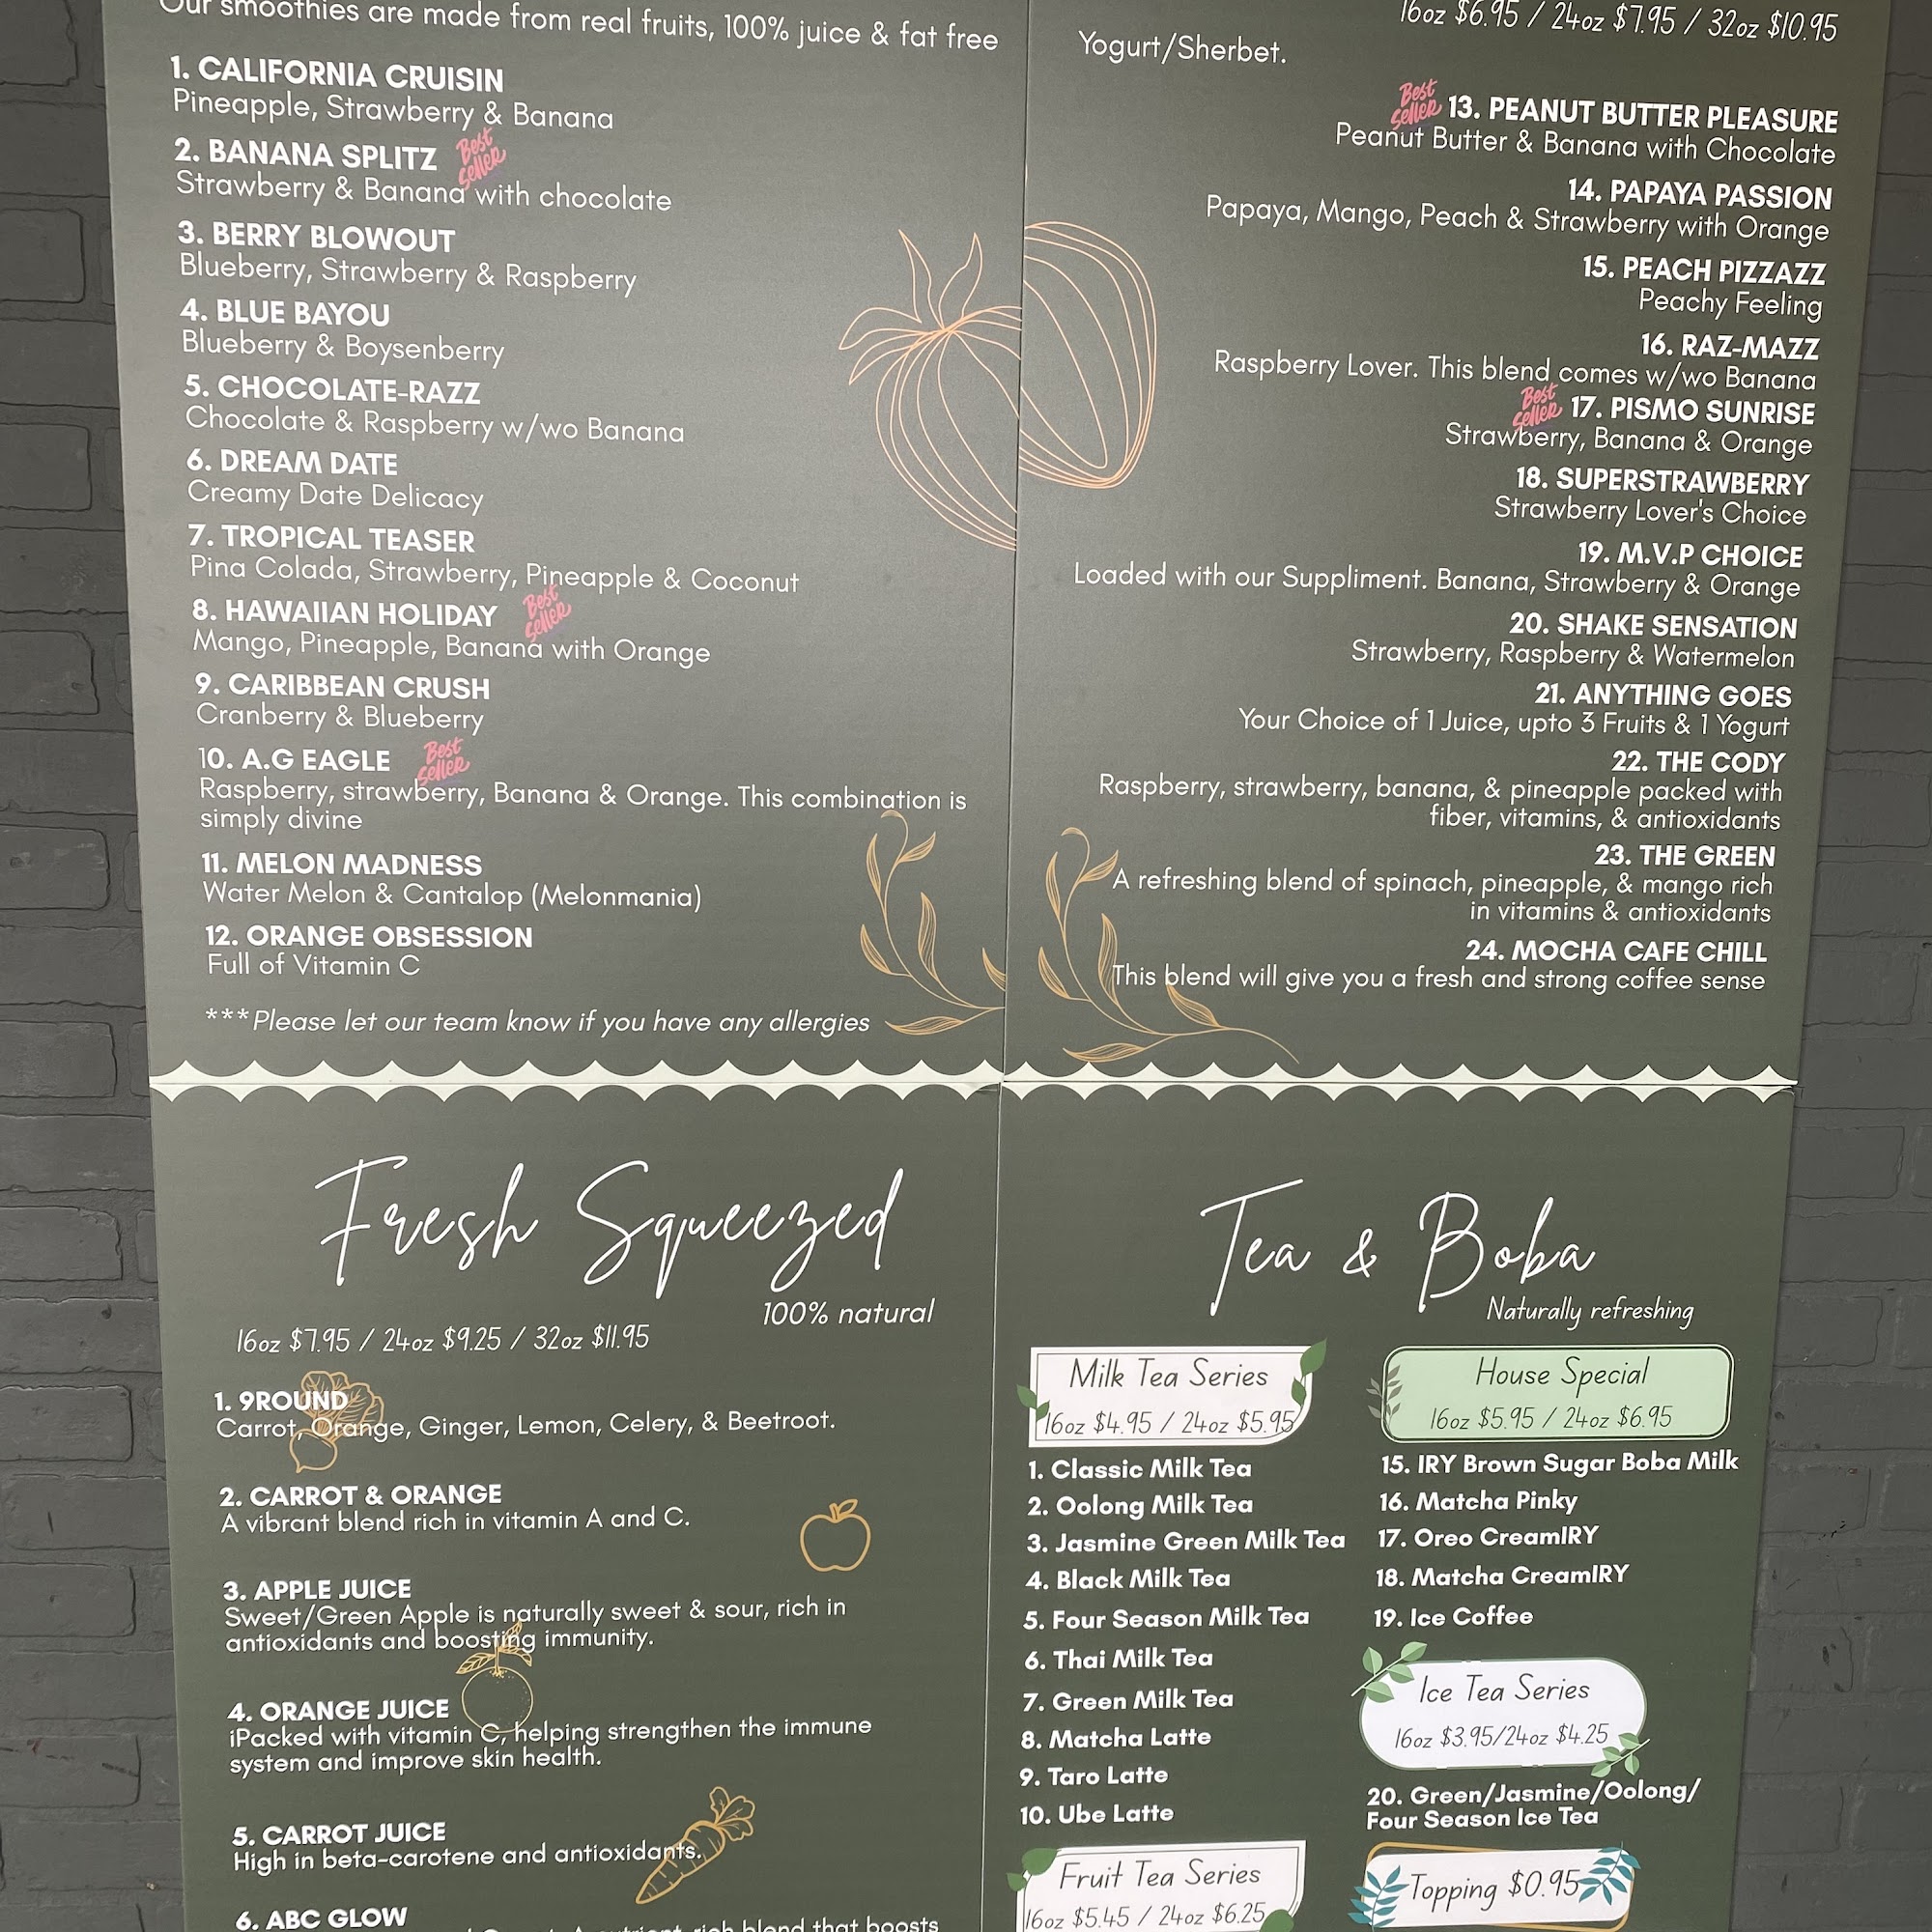 Our smoothies are made from real fruits, 100% juice & fat free
1. CALIFORNIA CRUISIN
Pineapple, Strawberry & Banana
2. BANANA SPLITZ Best Seller
Strawberry & Banana with chocolate
3. BERRY BLOWOUT
Blueberry, Strawberry & Raspberry
4. BLUE BAYOU
Blueberry & Boysenberry
5. CHOCOLATE-RAZZ
Chocolate & Raspberry w/wo Banana
6. DREAM DATE
Creamy Date Delicacy
7. TROPICAL TEASER
Pina Colada, Strawberry, Pineapple & Coconut
8. HAWAIIAN HOLIDAY Best Seller
Mango, Pineapple, Banana with Orange
9. CARIBBEAN CRUSH
Cranberry & Blueberry
10. A.G EAGLE Best Seller
Raspberry, strawberry, Banana & Orange. This combination is
simply divine
11. MELON MADNESS
Water Melon & Cantalop (Melonmania)
12. ORANGE OBSESSION
Full of Vitamin C
***Please let our team know if you have any allergies
16oz $6.95 / 24oz $7.95 / 32oz $10.95
Yogurt/Sherbet.
Best Seller 13. PEANUT BUTTER PLEASURE
Peanut Butter & Banana with Chocolate
14. PAPAYA PASSION
Papaya, Mango, Peach & Strawberry with Orange
15. PEACH PIZZAZZ
Peachy Feeling
16. RAZ-MAZZ
Raspberry Lover. This blend comes w/wo Banana
Best Seller 17. PISMO SUNRISE
Strawberry, Banana & Orange
18. SUPERSTRAWBERRY
Strawberry Lover's Choice
19. M.V.P CHOICE
Loaded with our Suppliment. Banana, Strawberry & Orange
20. SHAKE SENSATION
Strawberry, Raspberry & Watermelon
21. ANYTHING GOES
Your Choice of 1 Juice, upto 3 Fruits & 1 Yogurt
22. THE CODY
Raspberry, strawberry, banana, & pineapple packed with
fiber, vitamins, & antioxidants
23. THE GREEN
A refreshing blend of spinach, pineapple, & mango rich
in vitamins & antioxidants
24. MOCHA CAFE CHILL
This blend will give you a fresh and strong coffee sense
Fresh Squeezed
100% natural
16oz $7.95 / 24oz $9.25 / 32oz $11.95
1. 9ROUND
Carrot, Orange, Ginger, Lemon, Celery, & Beetroot.
2. CARROT & ORANGE
A vibrant blend rich in vitamin A and C.
3. APPLE JUICE
Sweet/Green Apple is naturally sweet & sour, rich in
antioxidants and boosting immunity.
4. ORANGE JUICE
iPacked with vitamin C, helping strengthen the immune
system and improve skin health.
5. CARROT JUICE
High in beta-carotene and antioxidants.
6. ABC GLOW
rich blend that boosts
Tea & Boba
Naturally refreshing
Milk Tea Series
16oz $4.95 / 24oz $5.95
1. Classic Milk Tea
2. Oolong Milk Tea
3. Jasmine Green Milk Tea
4. Black Milk Tea
5. Four Season Milk Tea
6. Thai Milk Tea
7. Green Milk Tea
8. Matcha Latte
9. Taro Latte
10. Ube Latte
Fruit Tea Series
16oz $5.45 / 24oz $6.25
House Special
16oz $5.95 / 24oz $6.95
15. IRY Brown Sugar Boba Milk
16. Matcha Pinky
17. Oreo CreamIRY
18. Matcha CreamIRY
19. Ice Coffee
Ice Tea Series
16oz $3.95/24oz $4.25
20. Green/Jasmine/Oolong/
Four Season Ice Tea
Topping $0.95